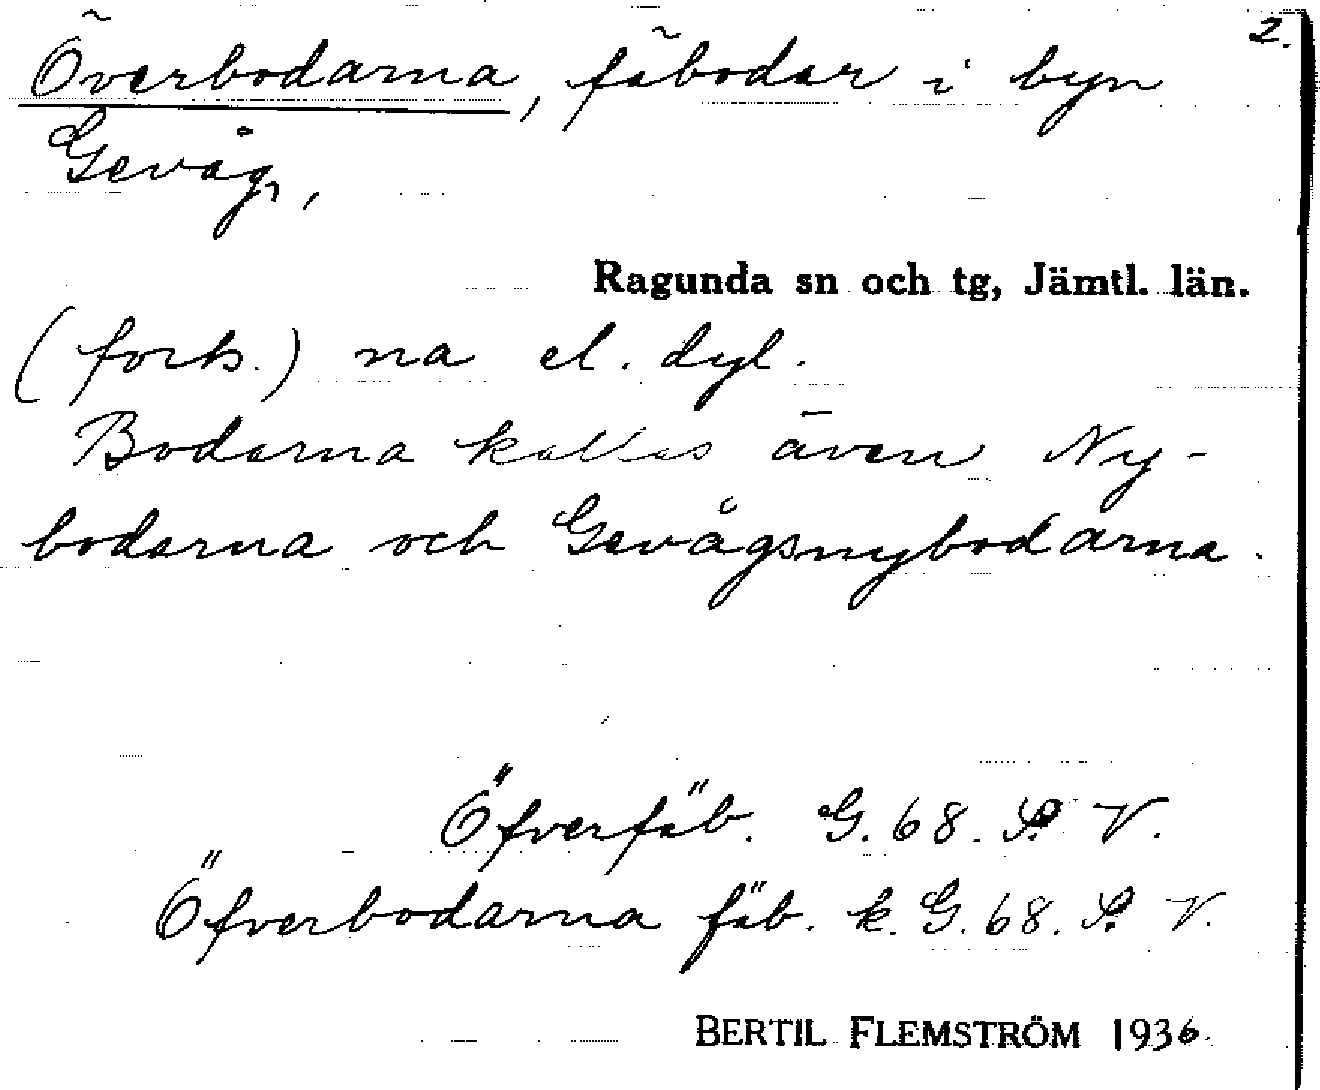 2.
Överbodarna, fäbodar i byn
Gevåg,
Ragunda sn och tg, Jämtl. län.
(forts.) na el. dyl.
Bodarna kallas även Ny-
bodarna och Gevågsnybodarna.
Öfverfäb. G. 68. S. V.
Öfverbodarna fäb. k. G. 68. S. V.
BERTIL FLEMSTRÖM 1936